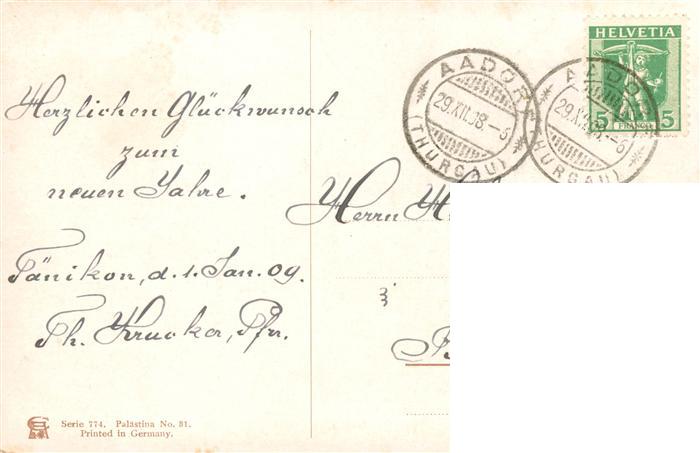 Herzlichen Glückwunsch
zum
neuen Jahre.
Tänikon, d. 1. Jan. 09.
Th. Krucker, Pfr.
Serie 774. Palästina No. 31.
Printed in Germany.
AADORF
29.XII.08.-6
(THURGAU)
AADORF
29.XII.08.-6
(THURGAU)
HELVETIA
5 FRANCO 5
Herrn